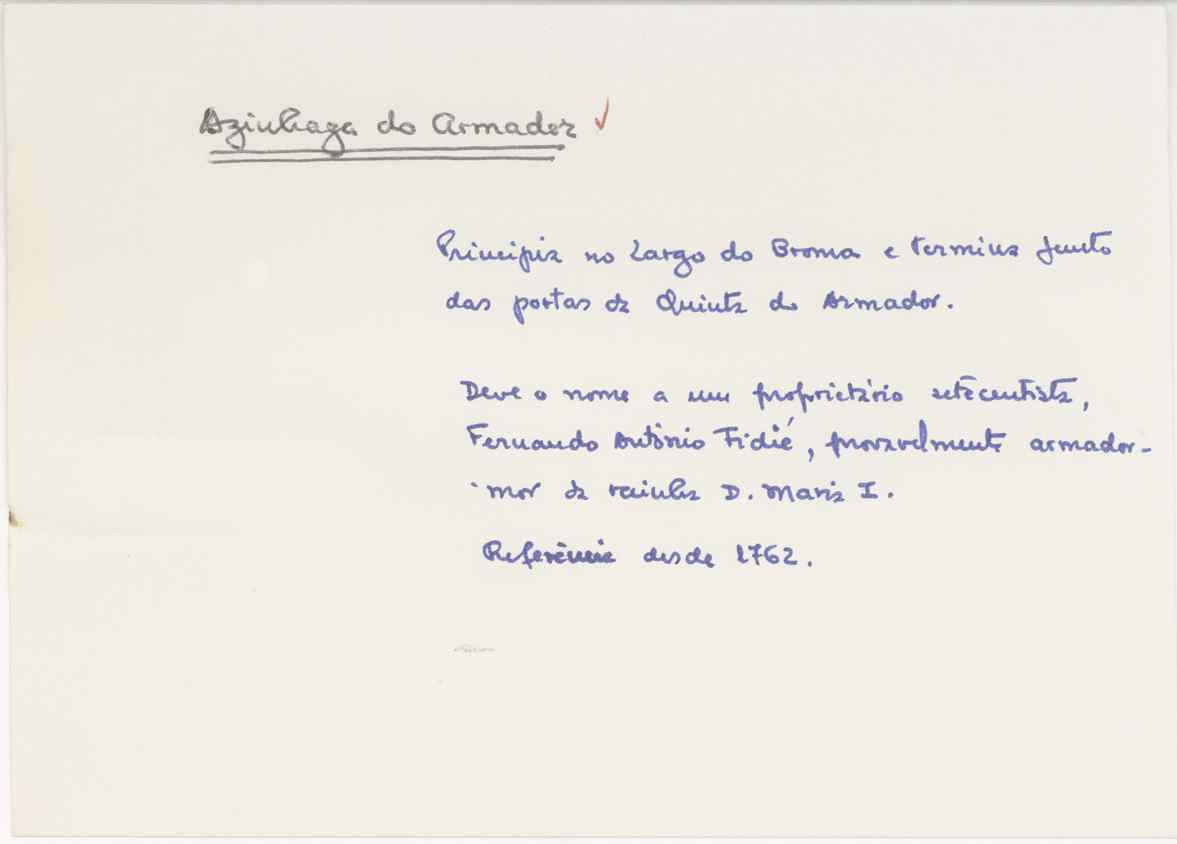 Azinhaga do Armador
Principia no Largo do Broma e termina junto
das portas da Quinta do Armador.
Deve o nome a um proprietário setecentista,
Fernando António Fidié, provavelmente armador-
-mor da rainha D. Maria I.
Referência desde 1762.